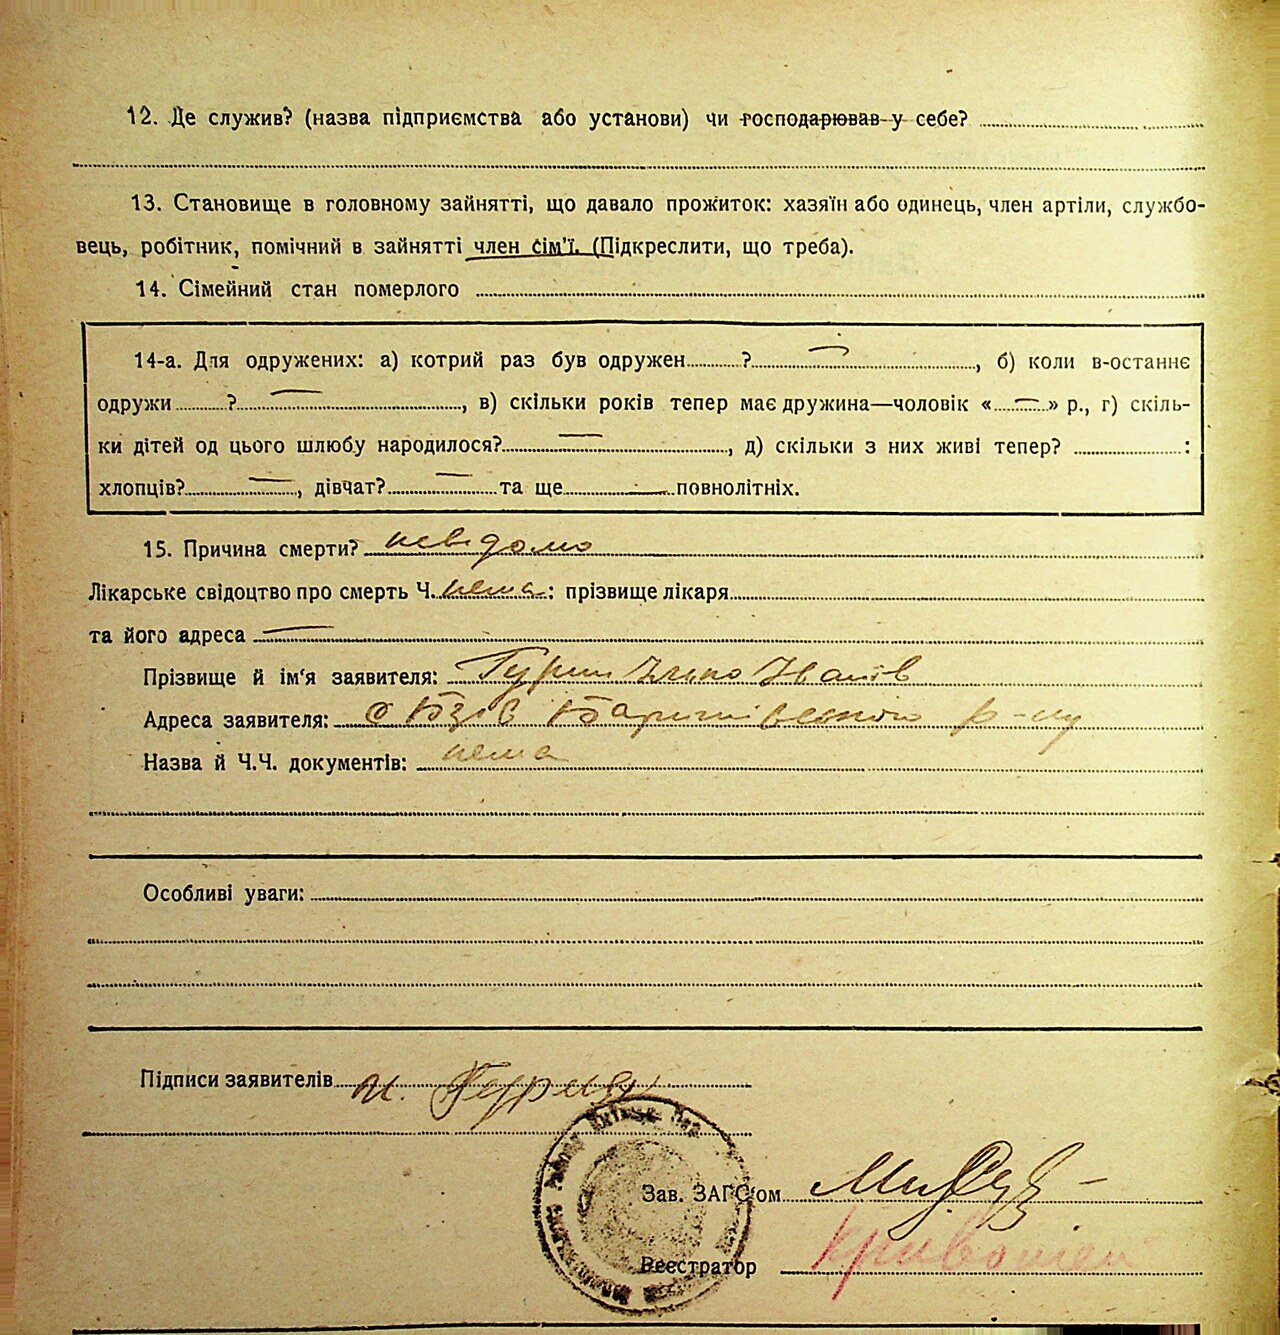 12. Де служив? (назва підприємства або установи) чи господарював у себе?
13. Становище в головному зайнятті, що давало прожиток: хазяїн або одинець, член артіли, службо-
вець, робітник, помічний в зайнятті член сім'ї. (Підкреслити, що треба).
14. Сімейний стан померлого
14-а. Для одружених: а) котрий раз був одружен ? — , б) коли в-останнє
одружи ? — , в) скільки років тепер має дружина—чоловік « — » р., г) скіль-
ки дітей од цього шлюбу народилося? — , д) скільки з них живі тепер? :
хлопців? — , дівчат? — та ще — повнолітніх.
15. Причина смерти? невідомо
Лікарське свідоцтво про смерть Ч. нема : прізвище лікаря
та його адреса —
Прізвище й ім'я заявителя: Гурин Ілько Іванів
Адреса заявителя: с р-ну
Назва й Ч.Ч. документів: нема
Особливі уваги:
Підписи заявителів И.
Зав. ЗАГС'ом
Реєстратор